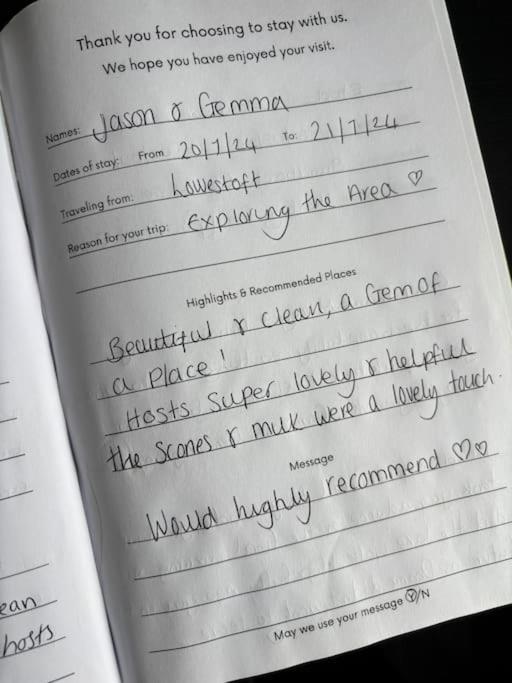 Thank you for choosing to stay with us.
We hope you have enjoyed your visit.
Names: Jason & Gemma
Dates of stay: From 20/7/24 To: 21/7/24
Traveling from: Lowestoft
Reason for your trip: Exploring the Area ♡
Highlights & Recommended Places
Beautiful & clean, a Gem of
a place!
Hosts super lovely & helpful
the scones & milk were a lovely touch.
Message
Would highly recommend ♡♡
May we use your message Y/N
ean
hosts